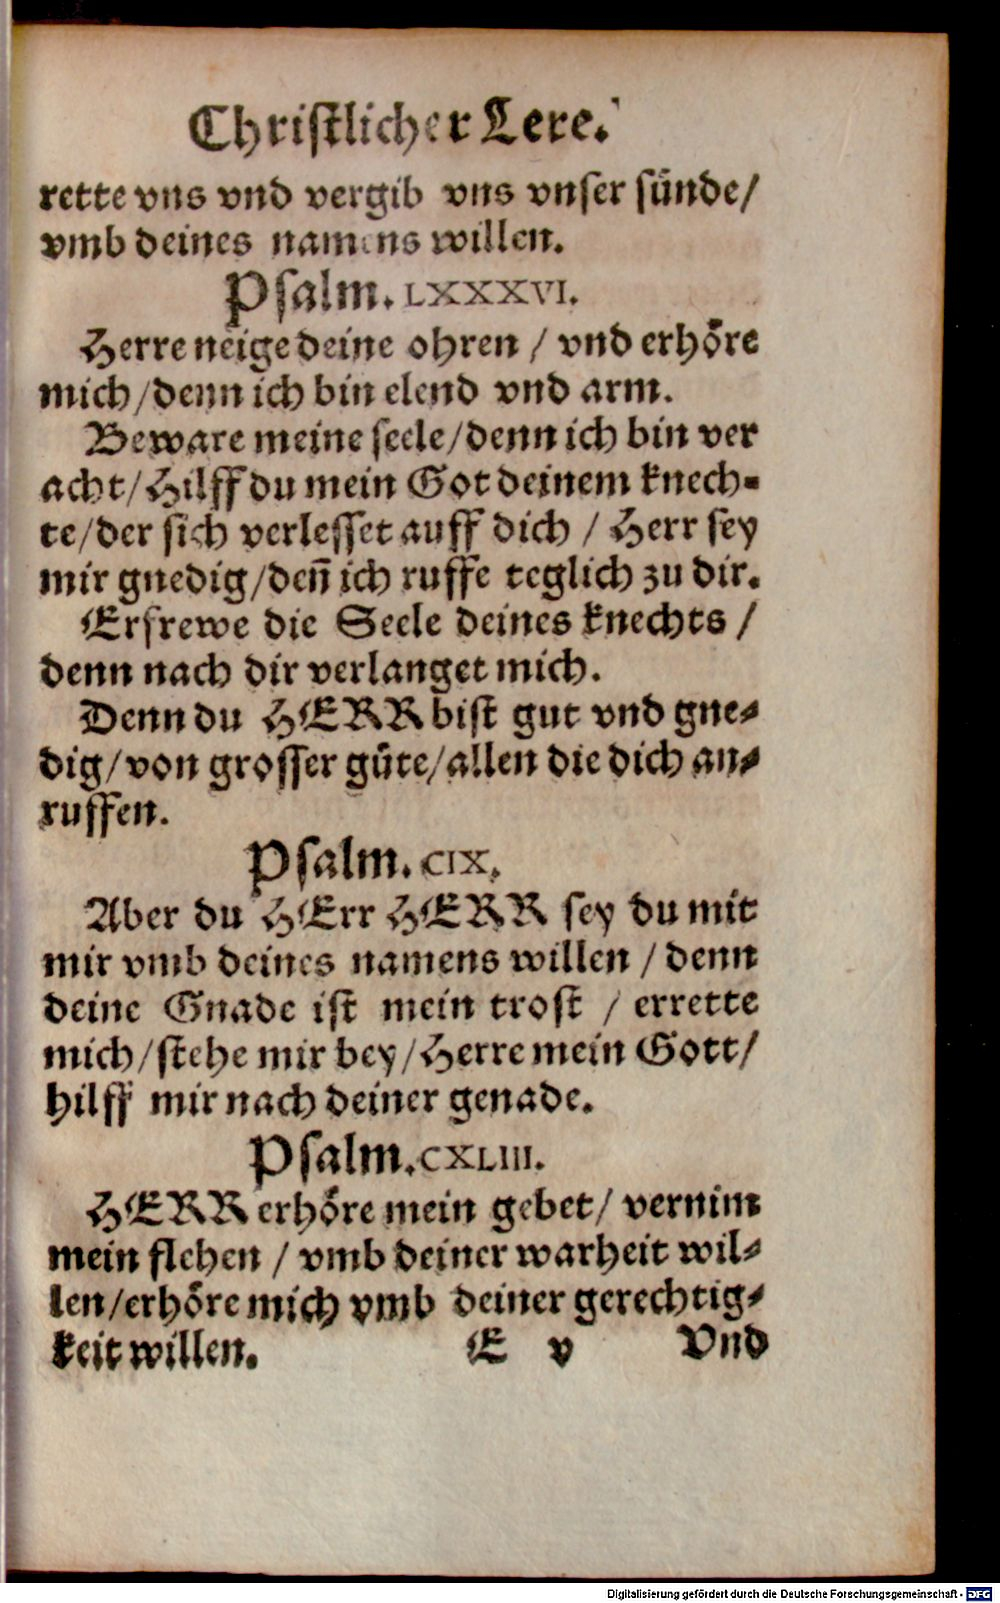 Christlicher Lere.
rette vns vnd vergib vns vnser sünde/
vmb deines namens willen.
Psalm. LXXXXVI.
Herre neige deine ohren / vnd erhöre
mich/denn ich bin elend vnd arm.
Beware meine seele/denn ich bin ver
acht/Hilff du mein Got deinem knech-
te/der sich verlesset auff dich / Herr sey
mir gnedig/den̄ ich ruffe teglich zu dir.
Erfrewe die Seele deines knechts /
denn nach dir verlanget mich.
Denn du HERR bist gut vnd gne-
dig/von grosser güte/allen die dich an-
ruffen.
Psalm. CIX.
Aber du HErr HERR sey du mit
mir vmb deines namens willen / denn
deine Gnade ist mein trost / errette
mich/stehe mir bey/Herre mein Gott/
hilff mir nach deiner genade.
Psalm.CXLIII.
HERR erhöre mein gebet/ vernim
mein flehen / vmb deiner warheit wil-
len/erhöre mich vmb deiner gerechtig-
keit willen. E v Vnd
Digitalisierung gefördert durch die Deutsche Forschungsgemeinschaft - DFG